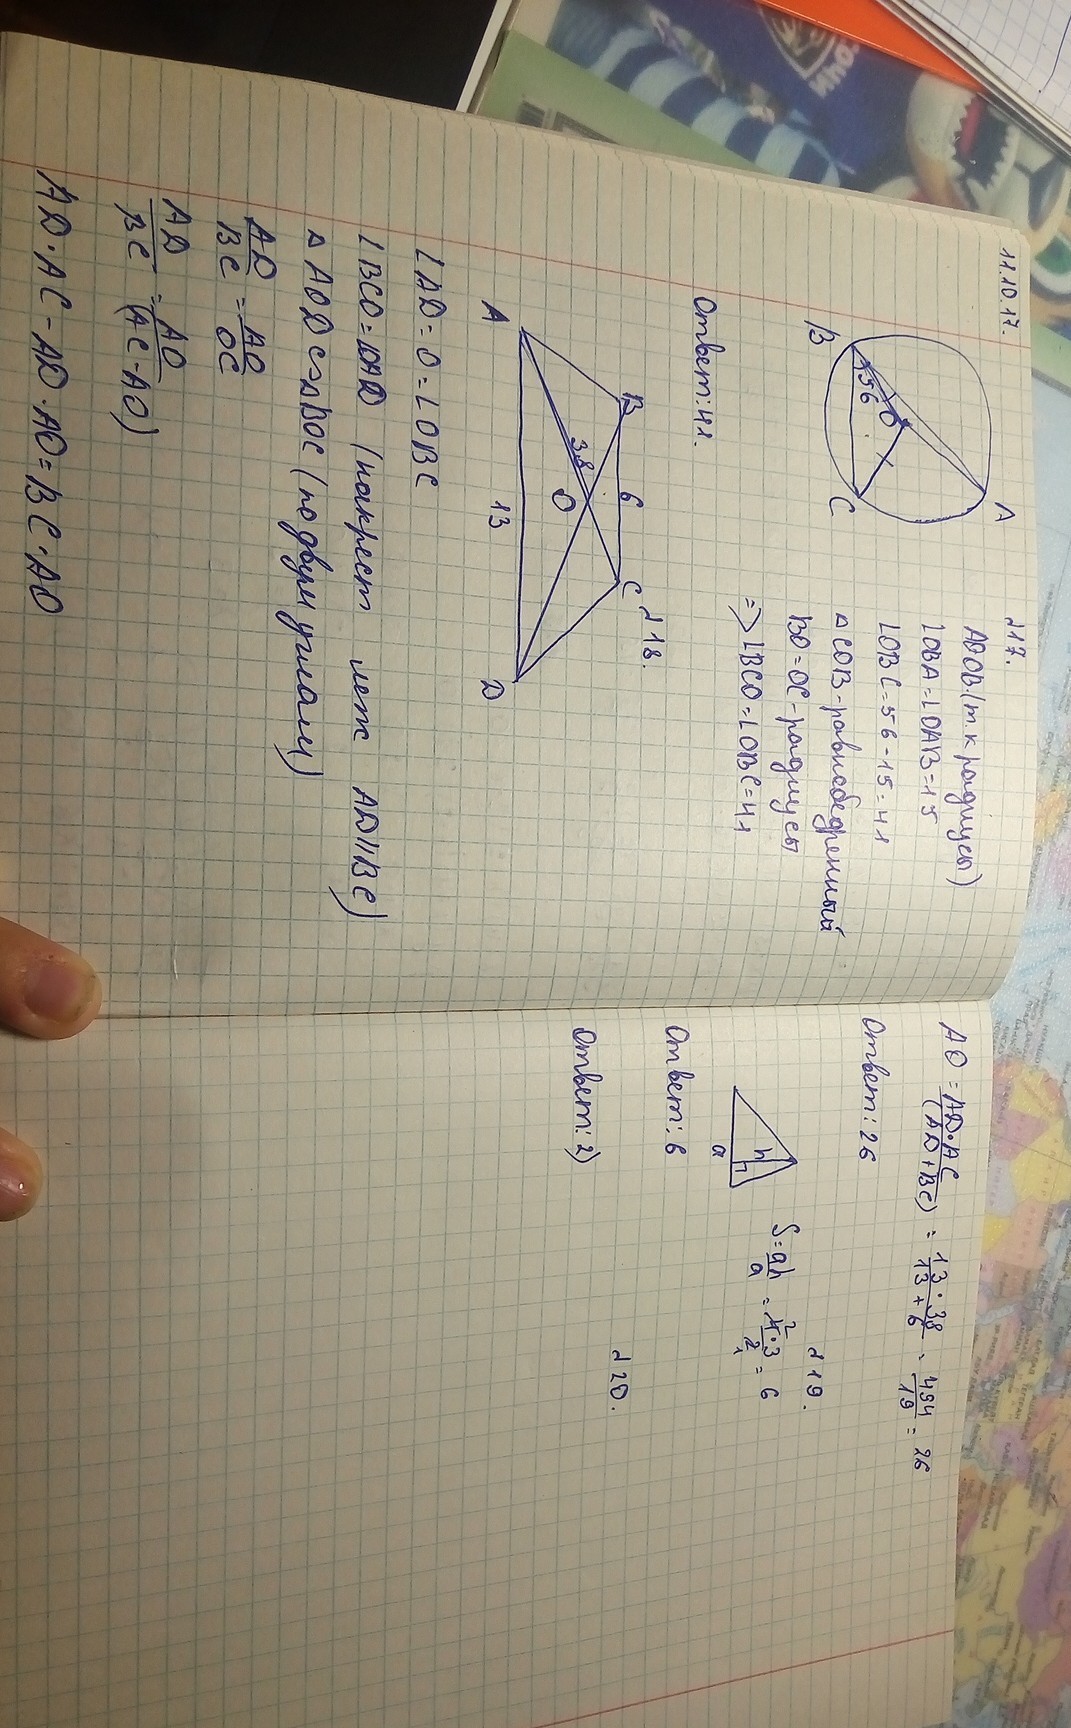 11.10.17.
№17.
A
B
C
O
56
AOOB (т.к радиусы)
∠OBA=∠OAB=15
∠OBC=56-15=41
△COB-равнобедренный
BO=OC-радиусы
=> ∠BCO=∠OBC=41
Ответ: 41.
№18.
B
6
C
38
O
A
13
D
∠AD=O=∠OBC
∠BCO= (накрест леж AD||BC)
△AOD∽△BOC (по двум углам)
AD/BC = AO/OC
AD/BC = AO/(AC-AO)
AD·AC-AD·AO=BC·AO
AO = AD·AC/(AD+BC) = 13·38/13+6 = 494/19 = 26
Ответ: 26
№19.
h
a
S=ah/a = 4·3/2 = 6
2
1
Ответ: 6
№20.
Ответ: 2)